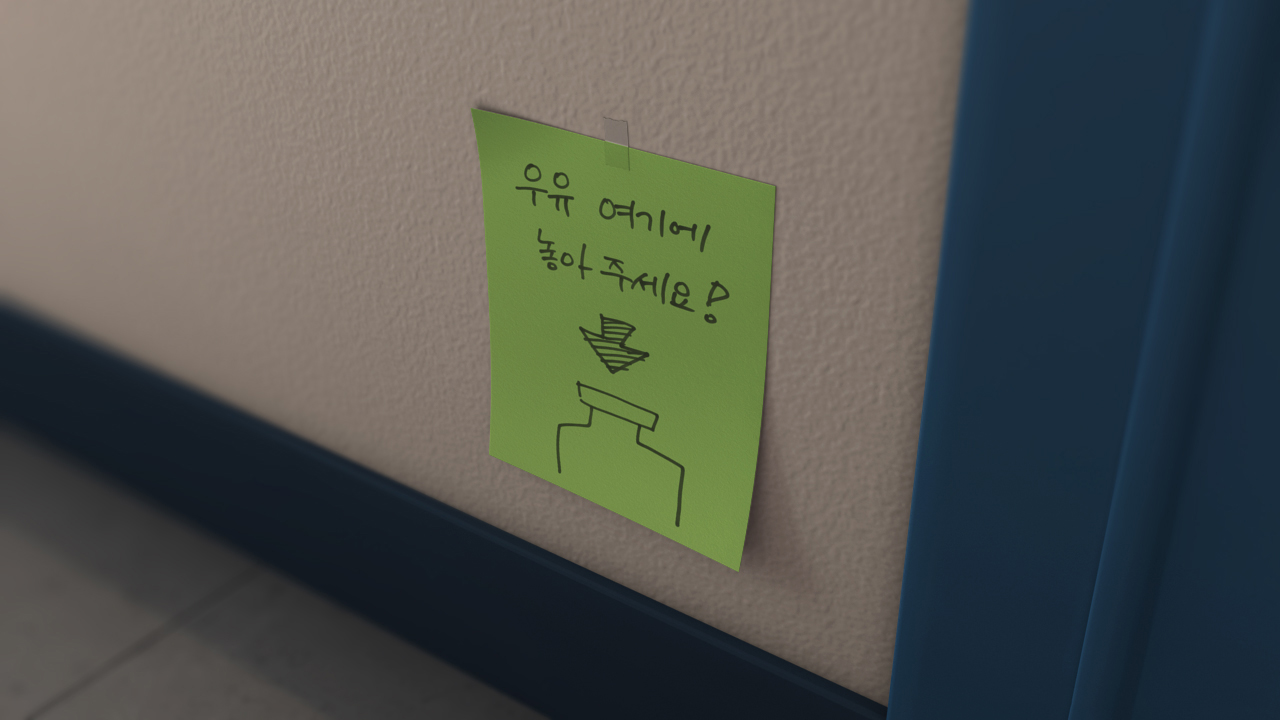 우유 여기에
놓아 주세요!